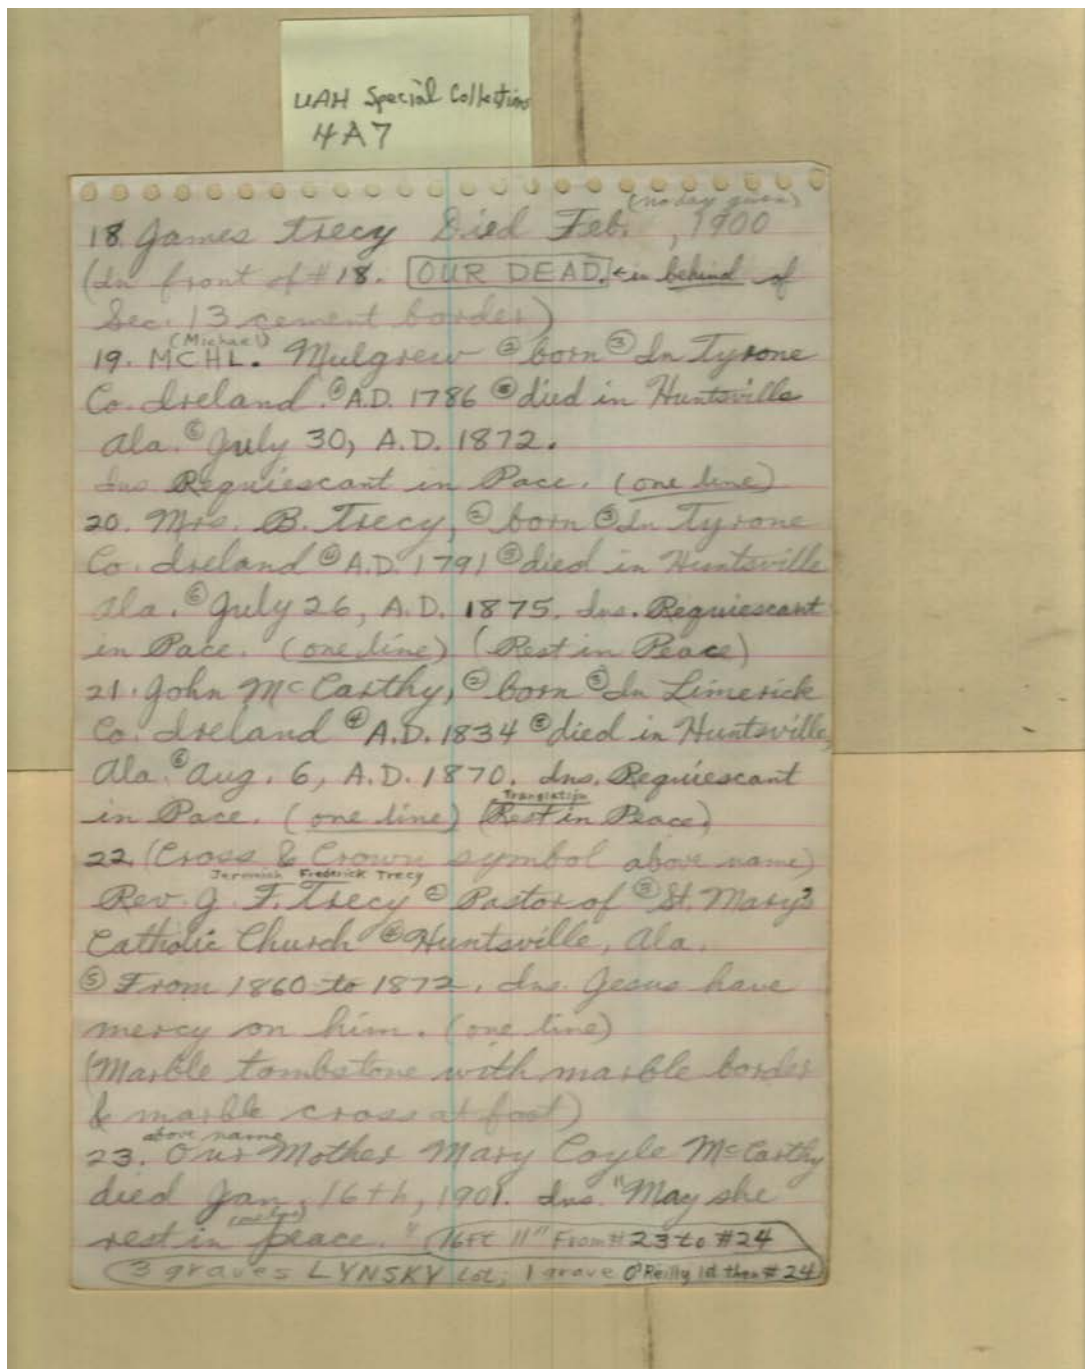 UAH Special Collections
4A7
(no day given)
18. James Trecy Died Feb. , 1900
(In front of #18. OUR DEAD. ← in behind of
Sec. 13 cement border)
(Michael)
19. MCHL. Mulgrew ② born ③ In Tyrone
Co. Ireland. ④ A.D. 1786 ⑤ died in Huntsville
Ala. ⑥ July 30, A.D. 1872.
Ins Requiescant in Pace. (one line)
20. Mrs. B. Trecy, ② born ③ In Tyrone
Co. Ireland ④ A.D. 1791 ⑤ died in Huntsville
Ala. ⑥ July 26, A.D. 1875. Ins. Requiescant
in Pace. (one line) (Rest in Peace)
21. John McCarthy, ② born ③ In Limerick
Co. Ireland ④ A.D. 1834 ⑤ died in Huntsville,
Ala. ⑥ Aug. 6, A.D. 1870. Ins. Requiescant
Translation
in Pace. (one line) (Rest in Peace)
22. (Cross & Crown symbol above name)
Jeremiah Frederick Trecy
Rev. J. F. Trecy ② Pastor of ③ St. Mary's
Catholic Church ④ Huntsville, Ala.
⑤ From 1860 to 1872. Ins. Jesus have
mercy on him. (one line)
(Marble tombstone with marble border
& marble cross at foot)
above name
23. Our Mother Mary Coyle McCarthy
died Jan. 16th, 1901. Ins. "May she
rest in peace." 16Ft 11" From #23 to #24
3 graves LYNSKY Lot; 1 grave O'Reilly lot then #24